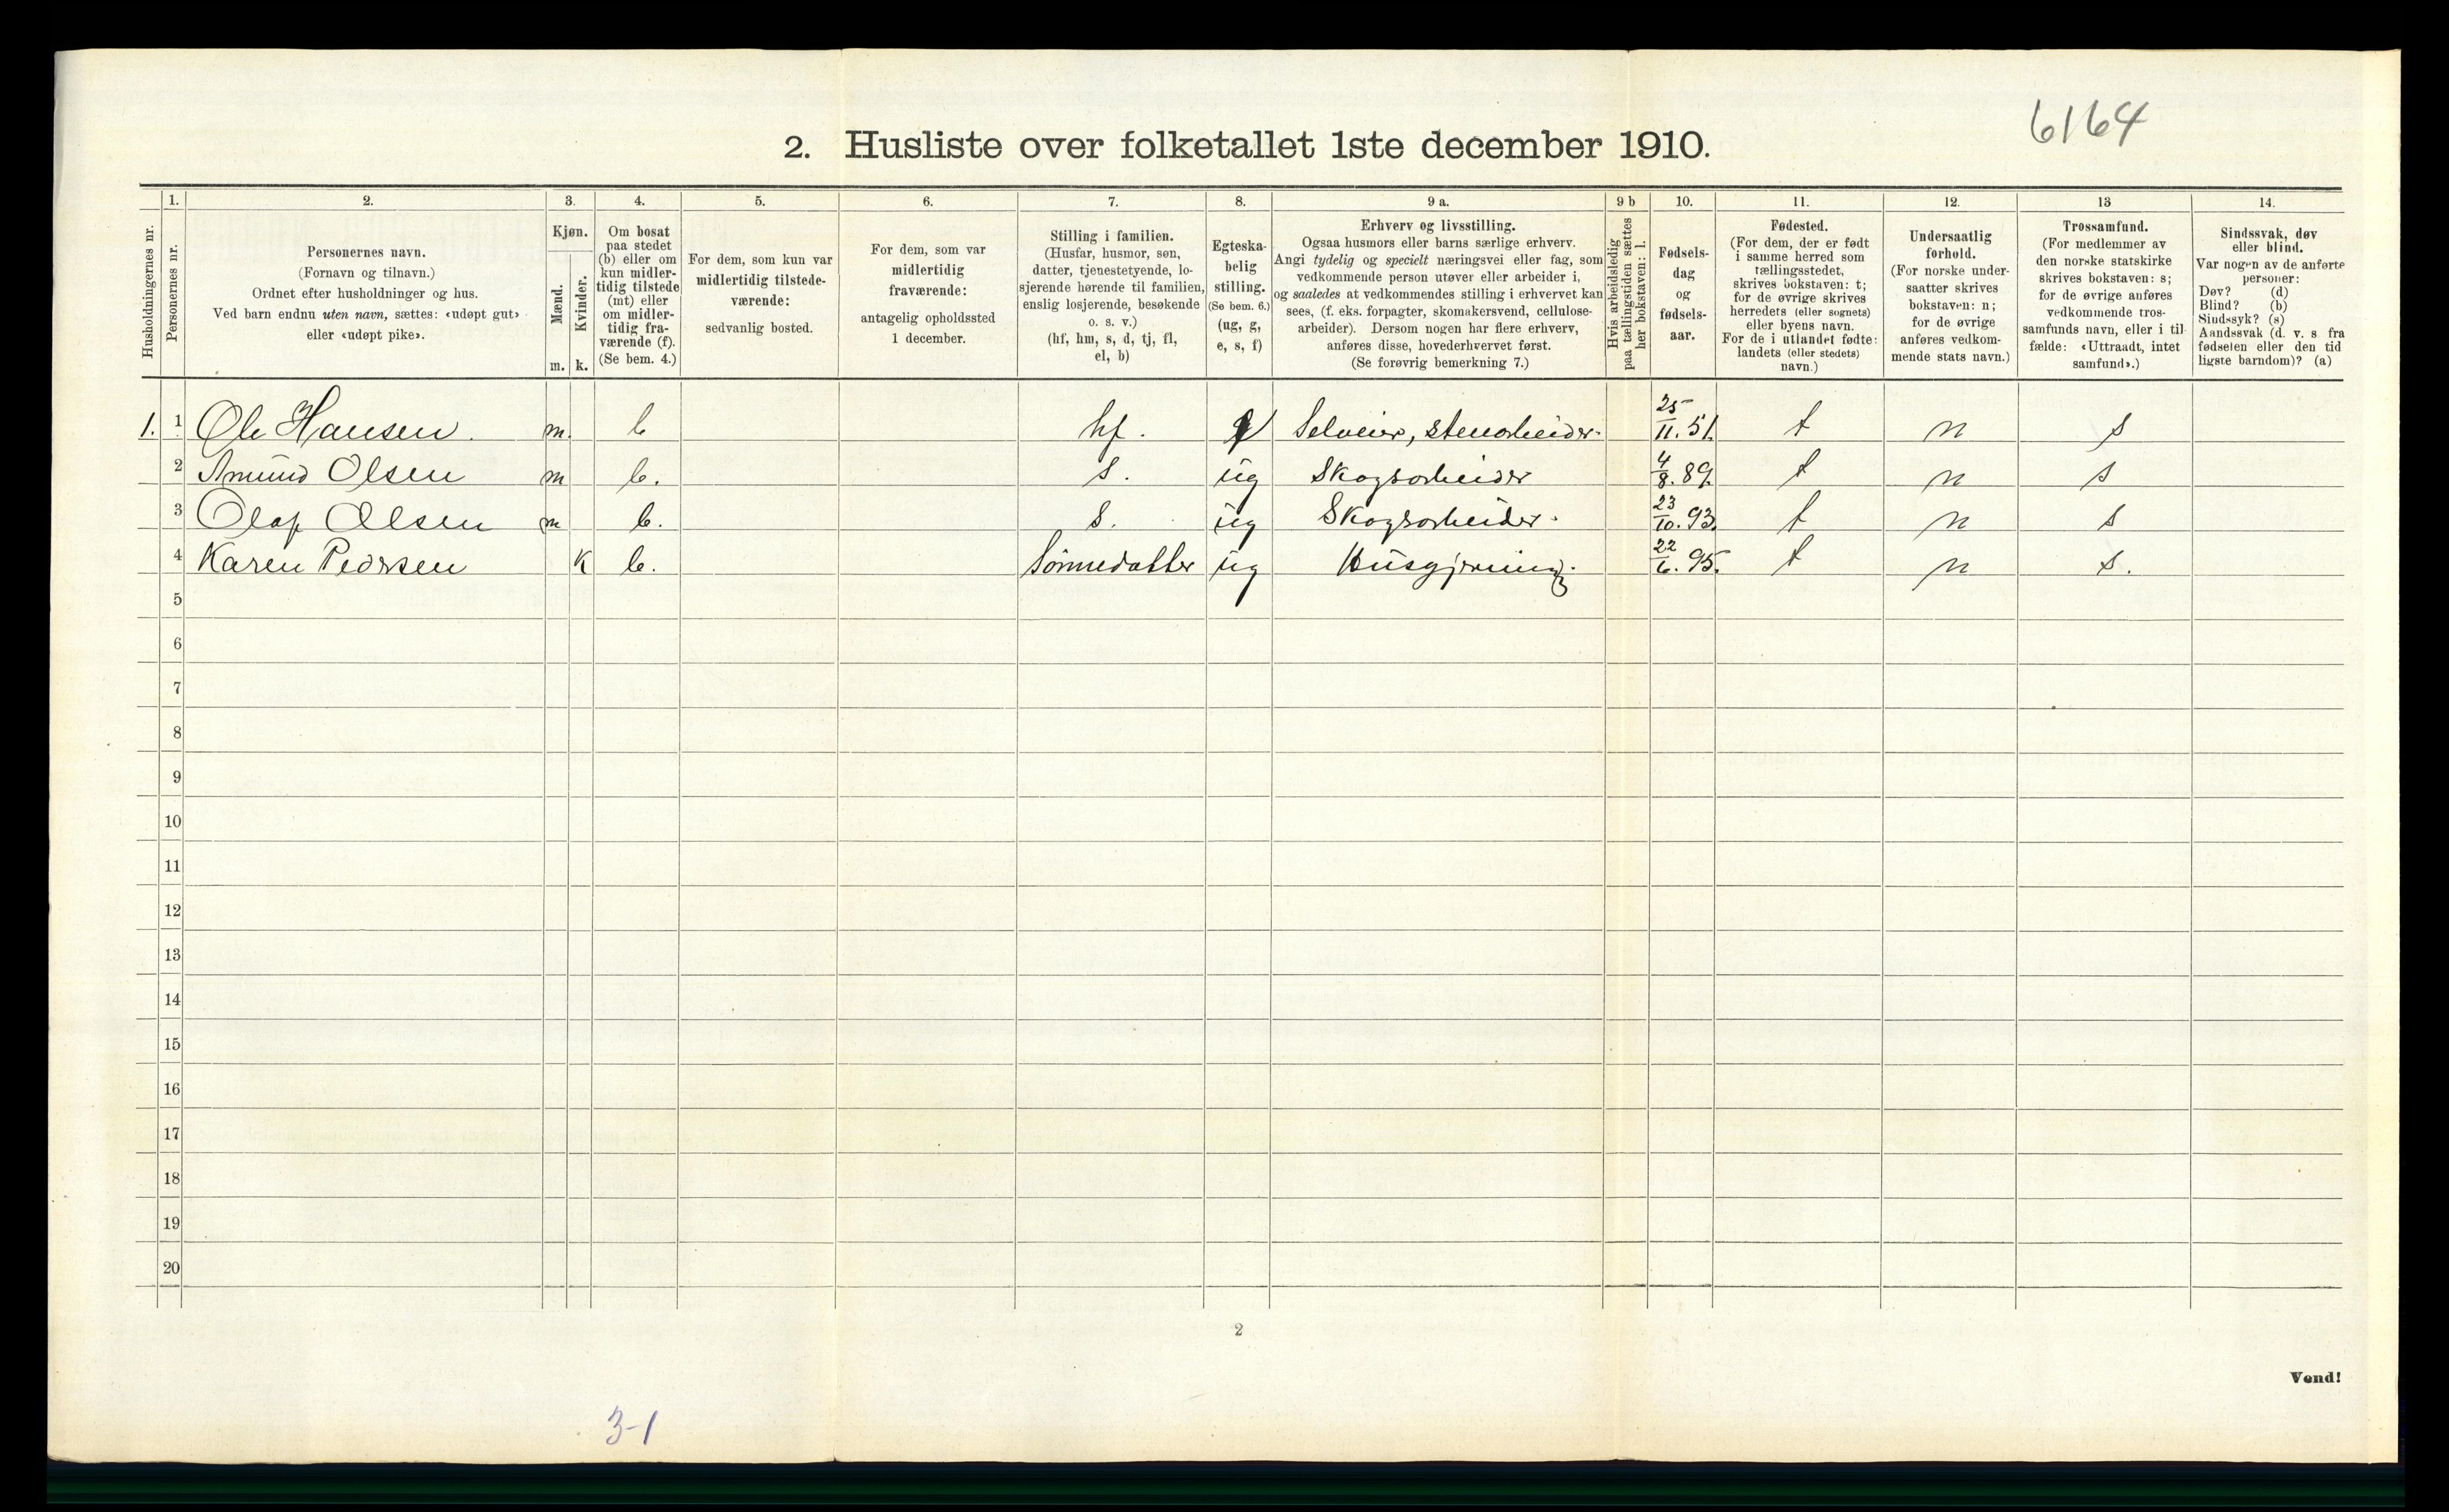 6164
2. Husliste over folketallet 1ste december 1910.
1. 2. 3. 4. 5. 6. 7. 8. 9 a. 9 b 10. 11. 12. 13 14.
Husholdningernes nr.
Personernes nr.
Personernes navn.
(Fornavn og tilnavn.)
Ordnet efter husholdninger og hus.
Ved barn endnu uten navn, sættes: «udøpt gut»
eller «udøpt pike».
Kjøn.
Mænd.
Kvinder.
m. k.
Om bosat
paa stedet
(b) eller om
kun midler-
tidig tilstede
(mt) eller
om midler-
tidig fra-
værende (f).
(Se bem. 4.)
For dem, som kun var
midlertidig tilstede-
værende:
sedvanlig bosted.
For dem, som var
midlertidig
fraværende:
antagelig opholdssted
1 december.
Stilling i familien.
(Husfar, husmor, søn,
datter, tjenestetyende, lo-
sjerende hørende til familien,
enslig losjerende, besøkende
o. s. v.)
(hf, hm, s, d, tj, fl,
el, b)
Egteska-
belig
stilling.
(Se bem. 6.)
(ug, g,
e, s, f)
Erhverv og livsstilling.
Ogsaa husmors eller barns særlige erhverv.
Angi tydelig og specielt næringsvei eller fag, som
vedkommende person utøver eller arbeider i,
og saaledes at vedkommendes stilling i erhvervet kan
sees, (f. eks. forpagter, skomakersvend, cellulose-
arbeider). Dersom nogen har flere erhverv,
anføres disse, hovederhvervet først.
(Se forøvrig bemerkning 7.)
Hvis arbeidsledig
paa tællingstiden sættes
her bokstaven: l.
Fødsels-
dag
og
fødsels-
aar.
Fødested.
(For dem, der er født
i samme herred som
tællingsstedet,
skrives bokstaven: t;
for de øvrige skrives
herredets (eller sognets)
eller byens navn.
For de i utlandet fødte:
landets (eller stedets)
navn.)
Undersaatlig
forhold.
(For norske under-
saatter skrives
bokstaven: n;
for de øvrige
anføres vedkom-
mende stats navn.)
Trossamfund.
(For medlemmer av
den norske statskirke
skrives bokstaven: s;
for de øvrige anføres
vedkommende tros-
samfunds navn, eller i til-
fælde: «Uttraadt, intet
samfund».)
Sindssvak, døv
eller blind.
Var nogen av de anførte
personer:
Døv? (d)
Blind? (b)
Sindssyk? (s)
Aandssvak (d. v. s fra
fødselen eller den tid
ligste barndom)? (a)
1. 1 Ole Hansen. m. b hf. Selveier, stenarbeider. 25/11. 51. t n s
2 Amund Olsen m b. s. ug Skogsarbeider 4/8. 89. t n s
3 Olaf Olsen m b. s. ug Skogsarbeider. 23/10. 93. t n s
4 Karen Pedersen K b. Sønnedatter ug Husgjerning. 22/6. 95. t n s.
5
6
7
8
9
10
11
12
13
14
15
16
17
18
19
20
2
Vend!
3-1